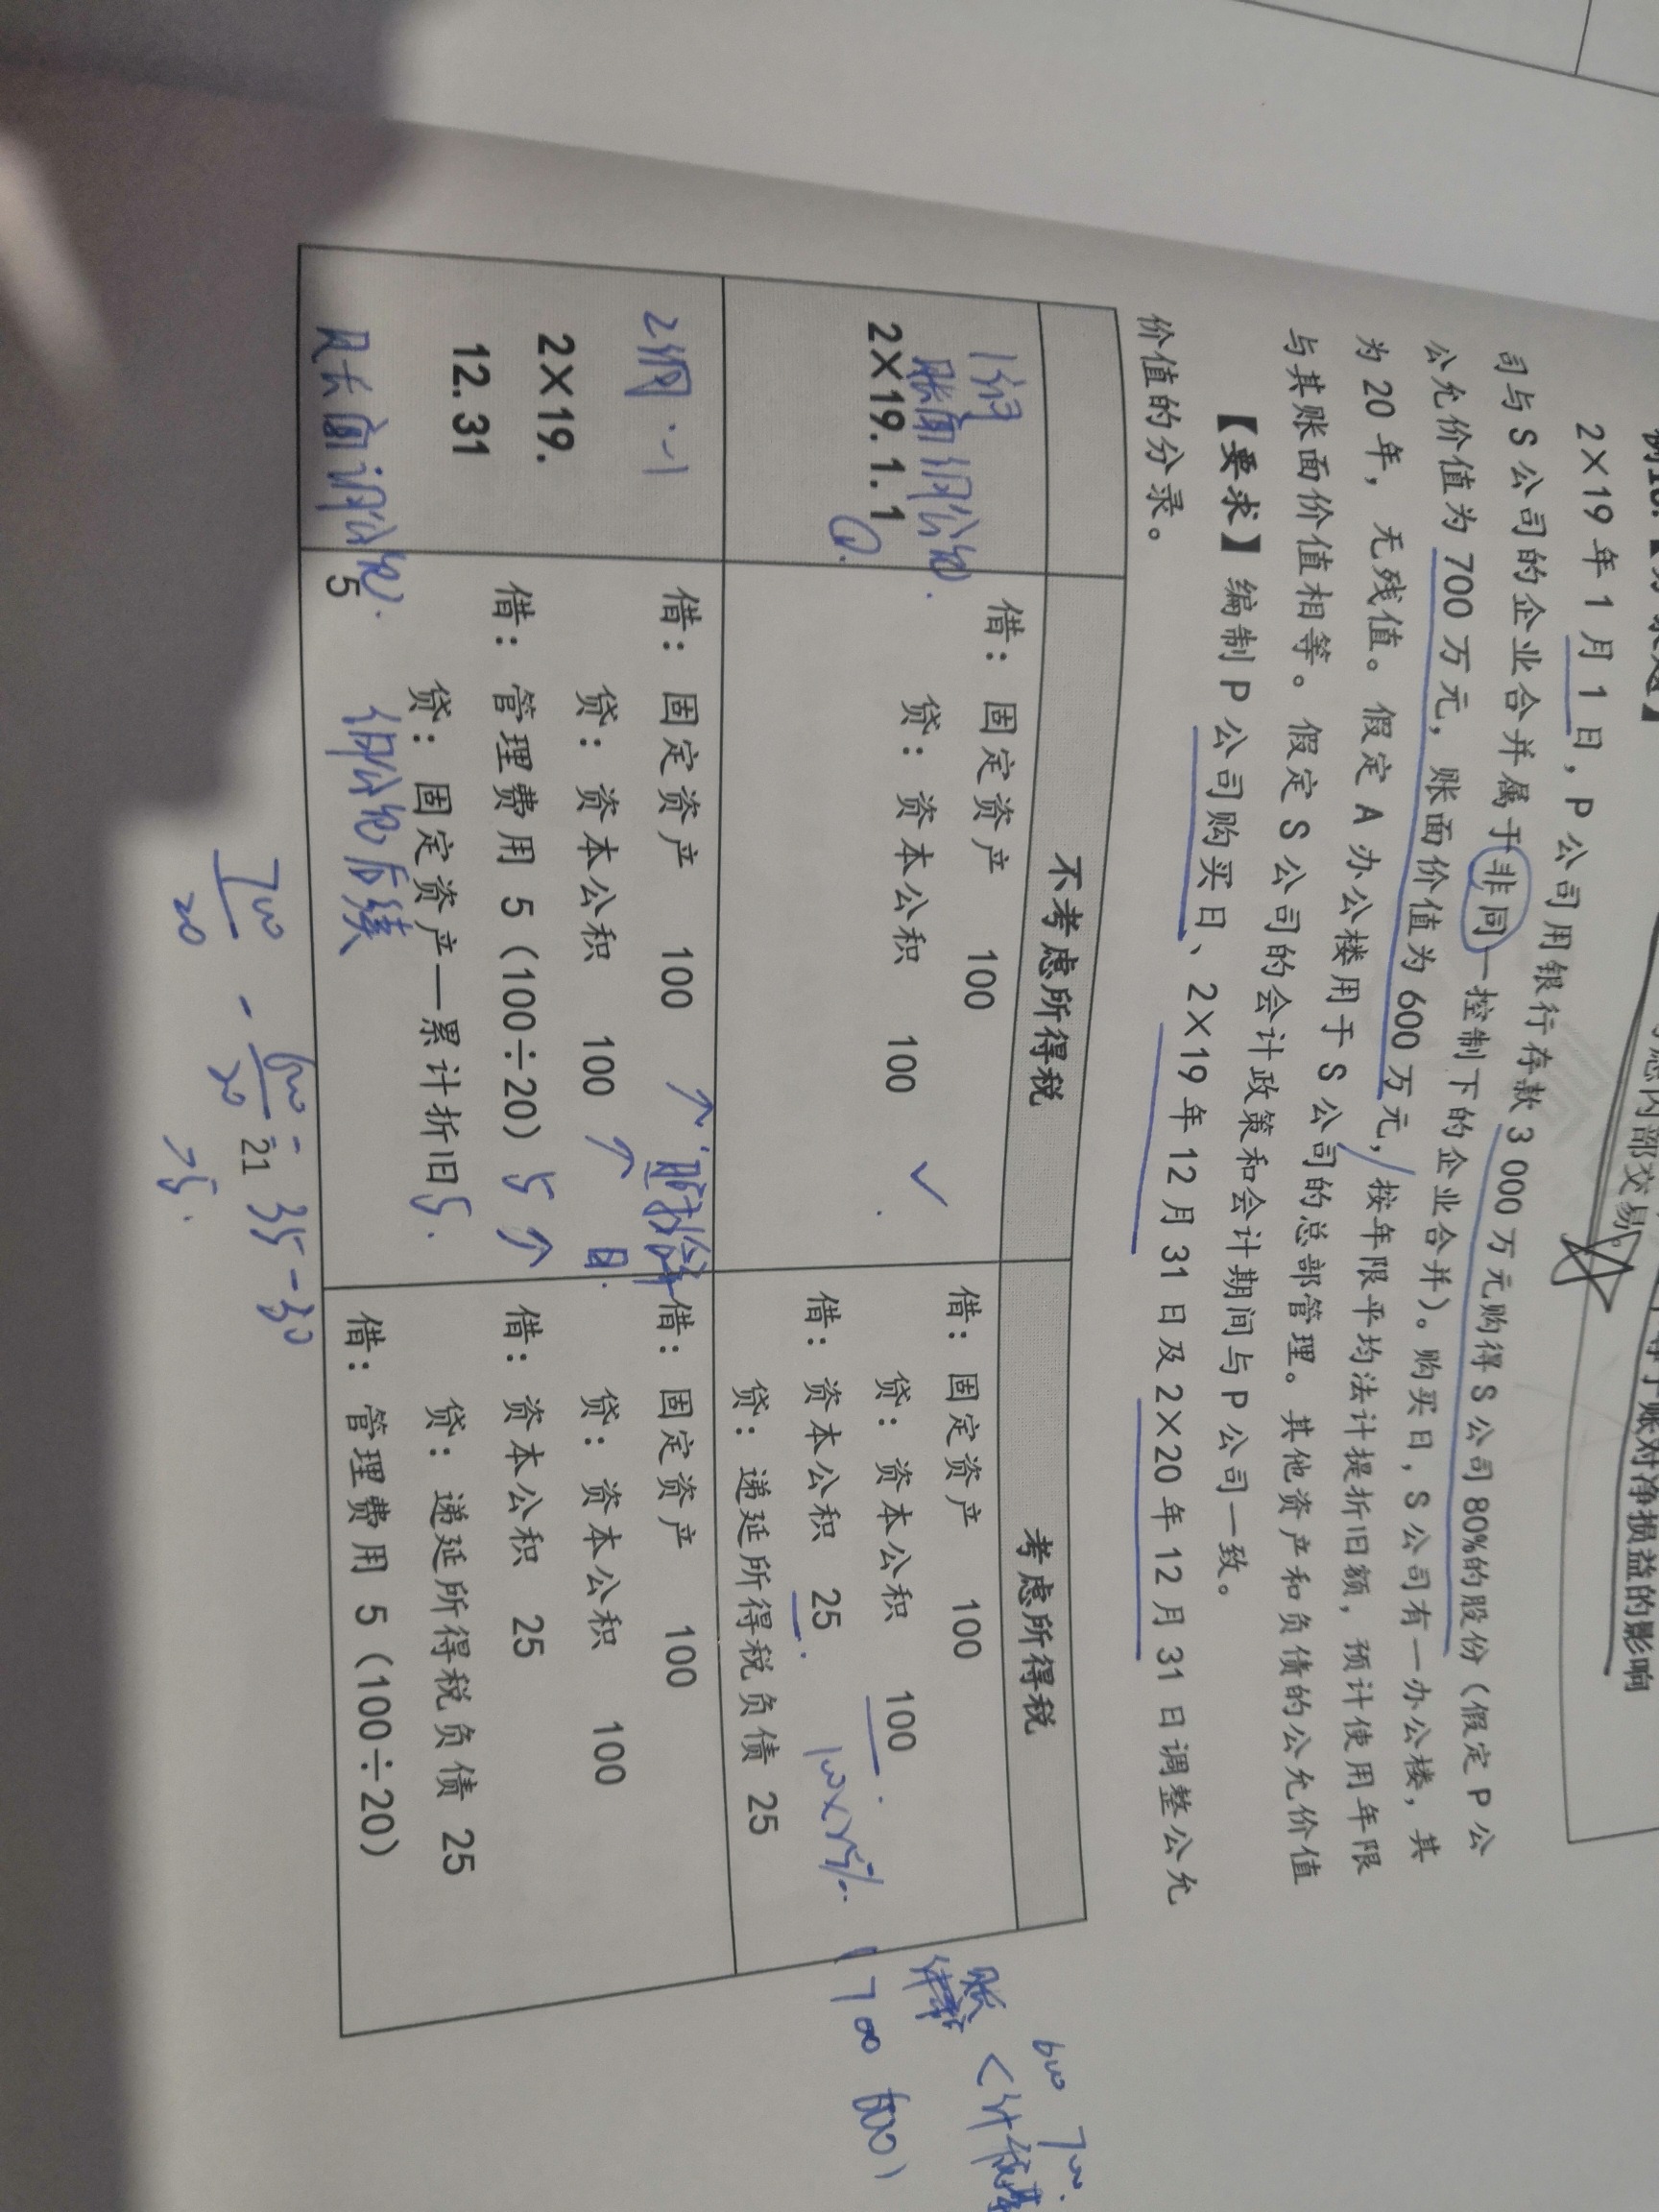 考虑内部交易
等于账对净损益的影响
2×19年1月1日，P公司用银行存款3 000万元购得S公司80%的股份（假定P公
司与S公司的企业合并属于非同一控制下的企业合并）。购买日，S公司有一办公楼，其
公允价值为700万元，账面价值为600万元，按年限平均法计提折旧额，预计使用年限
为20年，无残值。假定A办公楼用于S公司的总部管理。其他资产和负债的公允价值
与其账面价值相等。假定S公司的会计政策和会计期间与P公司一致。
【要求】编制P公司购买日、2×19年12月31日及2×20年12月31日调整公允
价值的分录。
不考虑所得税
考虑所得税
2×19.1.1
借：固定资产 100
贷：资本公积 100
借：固定资产 100
贷：资本公积 100
借：资本公积 25
贷：递延所得税负债 25
100×25%
2×19.
12.31
借：固定资产 100
贷：资本公积 100
借：管理费用 5（100÷20）
贷：固定资产—累计折旧
5
借：固定资产 100
贷：资本公积 100
借：资本公积 25
贷：递延所得税负债 25
借：管理费用 5（100÷20）
5
5
后续
700
20
-
600
20
35-30
=5
21
600 700
账
<计税基
700 600